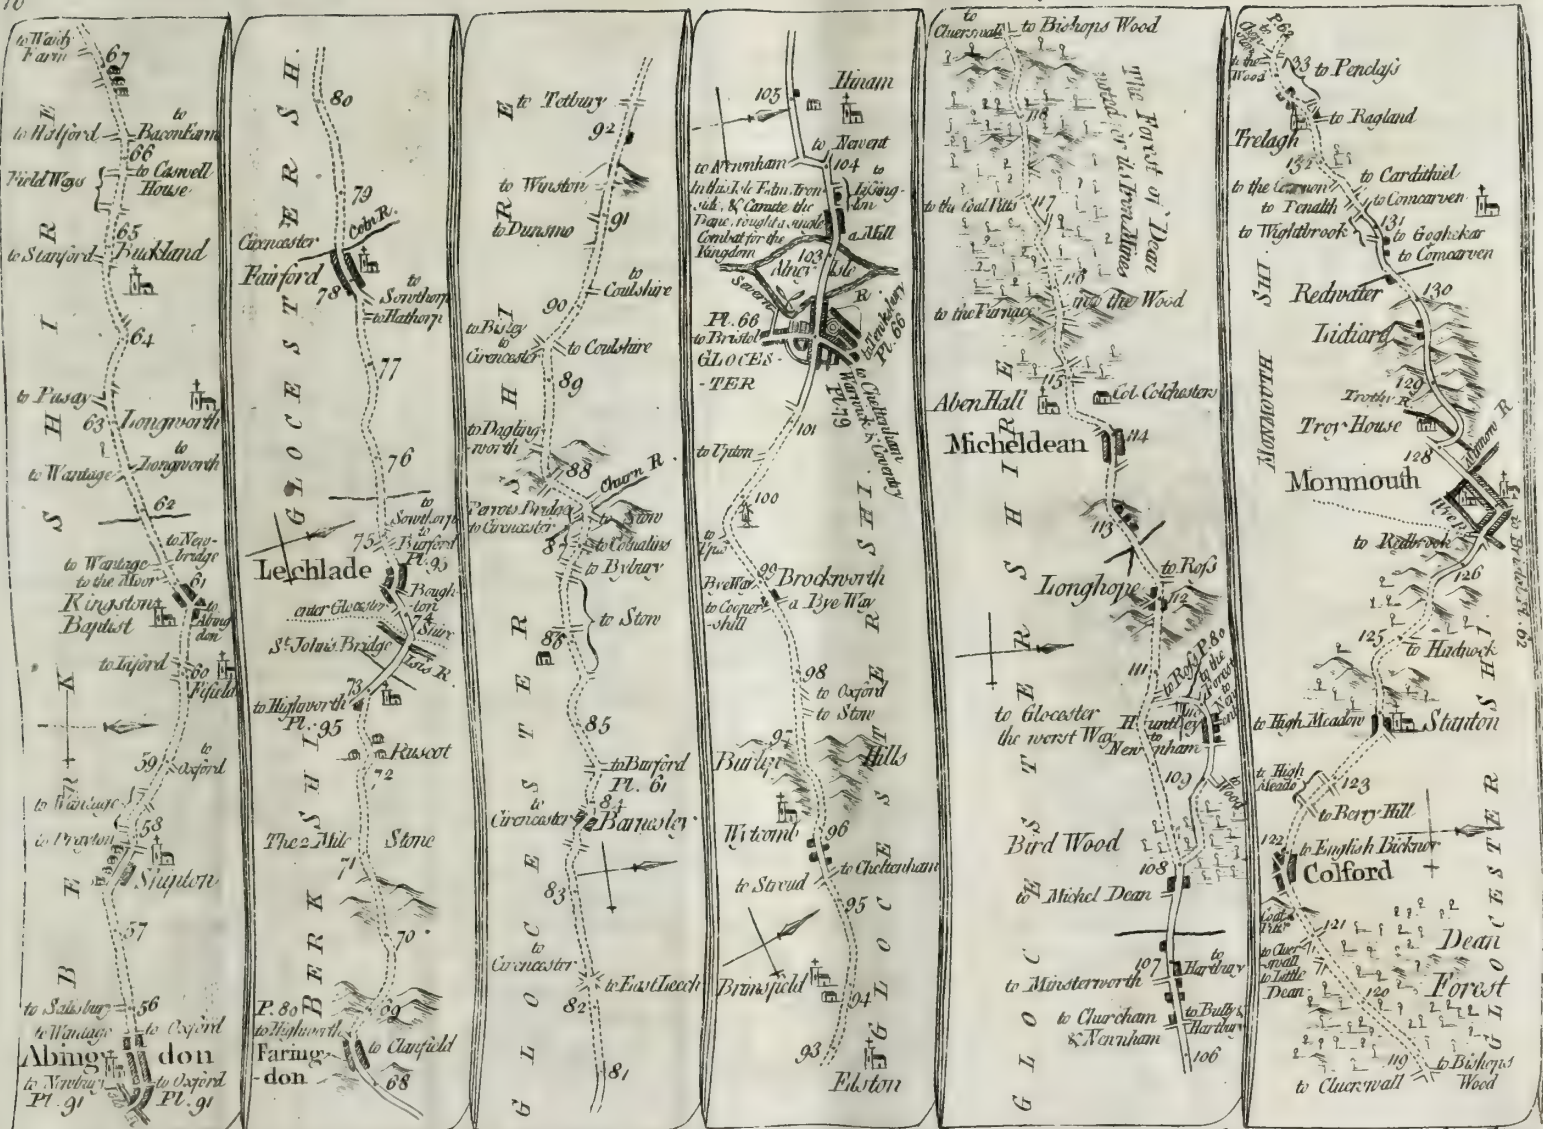 to Watch
Farm
67
to Halford
to
Bacon Farm
66
Field Ways
to Caswell
House
65
to Stanford
Buckland
64
to Pusay
63
Longworth
to
Longworth
to Wantage
62
to New-
bridge
to Wantage
to the Moor
61
Kingston
Baptist
to
Abing
don
to Liford
60
Fifield
59
to
Oxford
to Wantage
58
to Drayton
Shipton
57
to Salisbury
56
to Wantage
to Oxford
Abing don
to Newbury
Pl. 91
to Oxford
Pl. 91
BERK SHIRE
80
79
Coln R.
Cirencester
Fairford
78
to
Sowthorp
to Hathorp
77
76
to
Sowthorp
to
Burford
Pl. 95
75
Lechlade
Bough-
ton
enter Glocester
74
Shire
St. John's Bridge
Isis R.
73
to Highworth
Pl. 95
Ruscot
72
The 2 Mile Stone
71
70
P. 80
69
to Highworth
to Clanfield
Faring-
-don
68
GLOCESTERSH.
BERK SHI
to Tetbury
92
to Winston
91
to Dunsmo
to
Coulshire
90
to Bisley
to
Cirencester
to Coulshire
89
to Dagling-
worth
88
Churn R.
Perrots Bridge
to Cirencester
to Stow
87
to Colnalins
to Bybury
to Stow
86
85
to Burford
Pl. 61
84
to
Cirencester
Barnesley
83
to
Cirencester
to East Leech
82
81
GLOCESTERSHIRE
105
Hinam
to Newent
to Newnham
104
to
Lissing-
ton
In this Isle Edm. Iron-
side, & Canute the
Dane, fought a single
Combat for the
Kingdom
a Mill
103
Alney Isle
Severn R
Pl. 66
to Bristol
GLOCES-
-TER
to Teuksbury
Pl. 66
to Cheltenham
Warwick & Coventry
Pl. 79
101
to Upton
100
to
Upton
99
Bye Way
to Cooper-
-shill
Brockworth
a Bye Way
98
to Oxford
to Stow
97
Burlip Hills
Wytcomb
96
to Cheltenham
to Stroud
95
Brinsfield
94
93
Elston
GLOCESTERSHIRE
to
Cluerswall
to Bishops Wood
The Forest of Dean
noted for its Iron Mines
118
to the Coal Pitts
117
116
into the Wood
to the Furnace
115
Aben Hall
Col. Colchesters
Micheldean
114
113
Longhope
to Ross
112
111
to Ross P. 80
to the
Forest
to
Newent
to Glocester
the worst Way
Huntley
to
Newnham
109
Wood
Bird Wood
108
to Michel Dean
107
to
Hartbury
to Minsterworth
to Churcham
& Newnham
to Bully &
Hartbury
106
GLOCESTERSHIRE
P. 62
to
Chepstow
to the
Wood
133
to Penclass
to Ragland
Trelagh
132
to Cardithiel
to the Cearnon
to Comcarven
to Penalth
131
to Wightbrook
to Goghekar
to Comcarven
Redwater
130
Lidiard
129
Trothy R
Troy House
128
Minnow R
Monmouth
Wye R
to Redbrook
to Bristol Pl. 62
126
125
to Hadnock
to High Meadow
Stanton
to High
Meado
123
to Berry Hill
122
to English Bicknor
Colford
Coal
Pitts
121
to Cluer-
-swall
to Little
Dean
120
Dean
Forest
119
to Cluerswall
to Bishops
Wood
MONMOUTH SHI
GLOCESTER SHI.